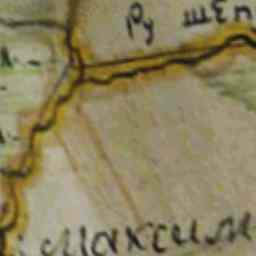 Ру шеп
Максим